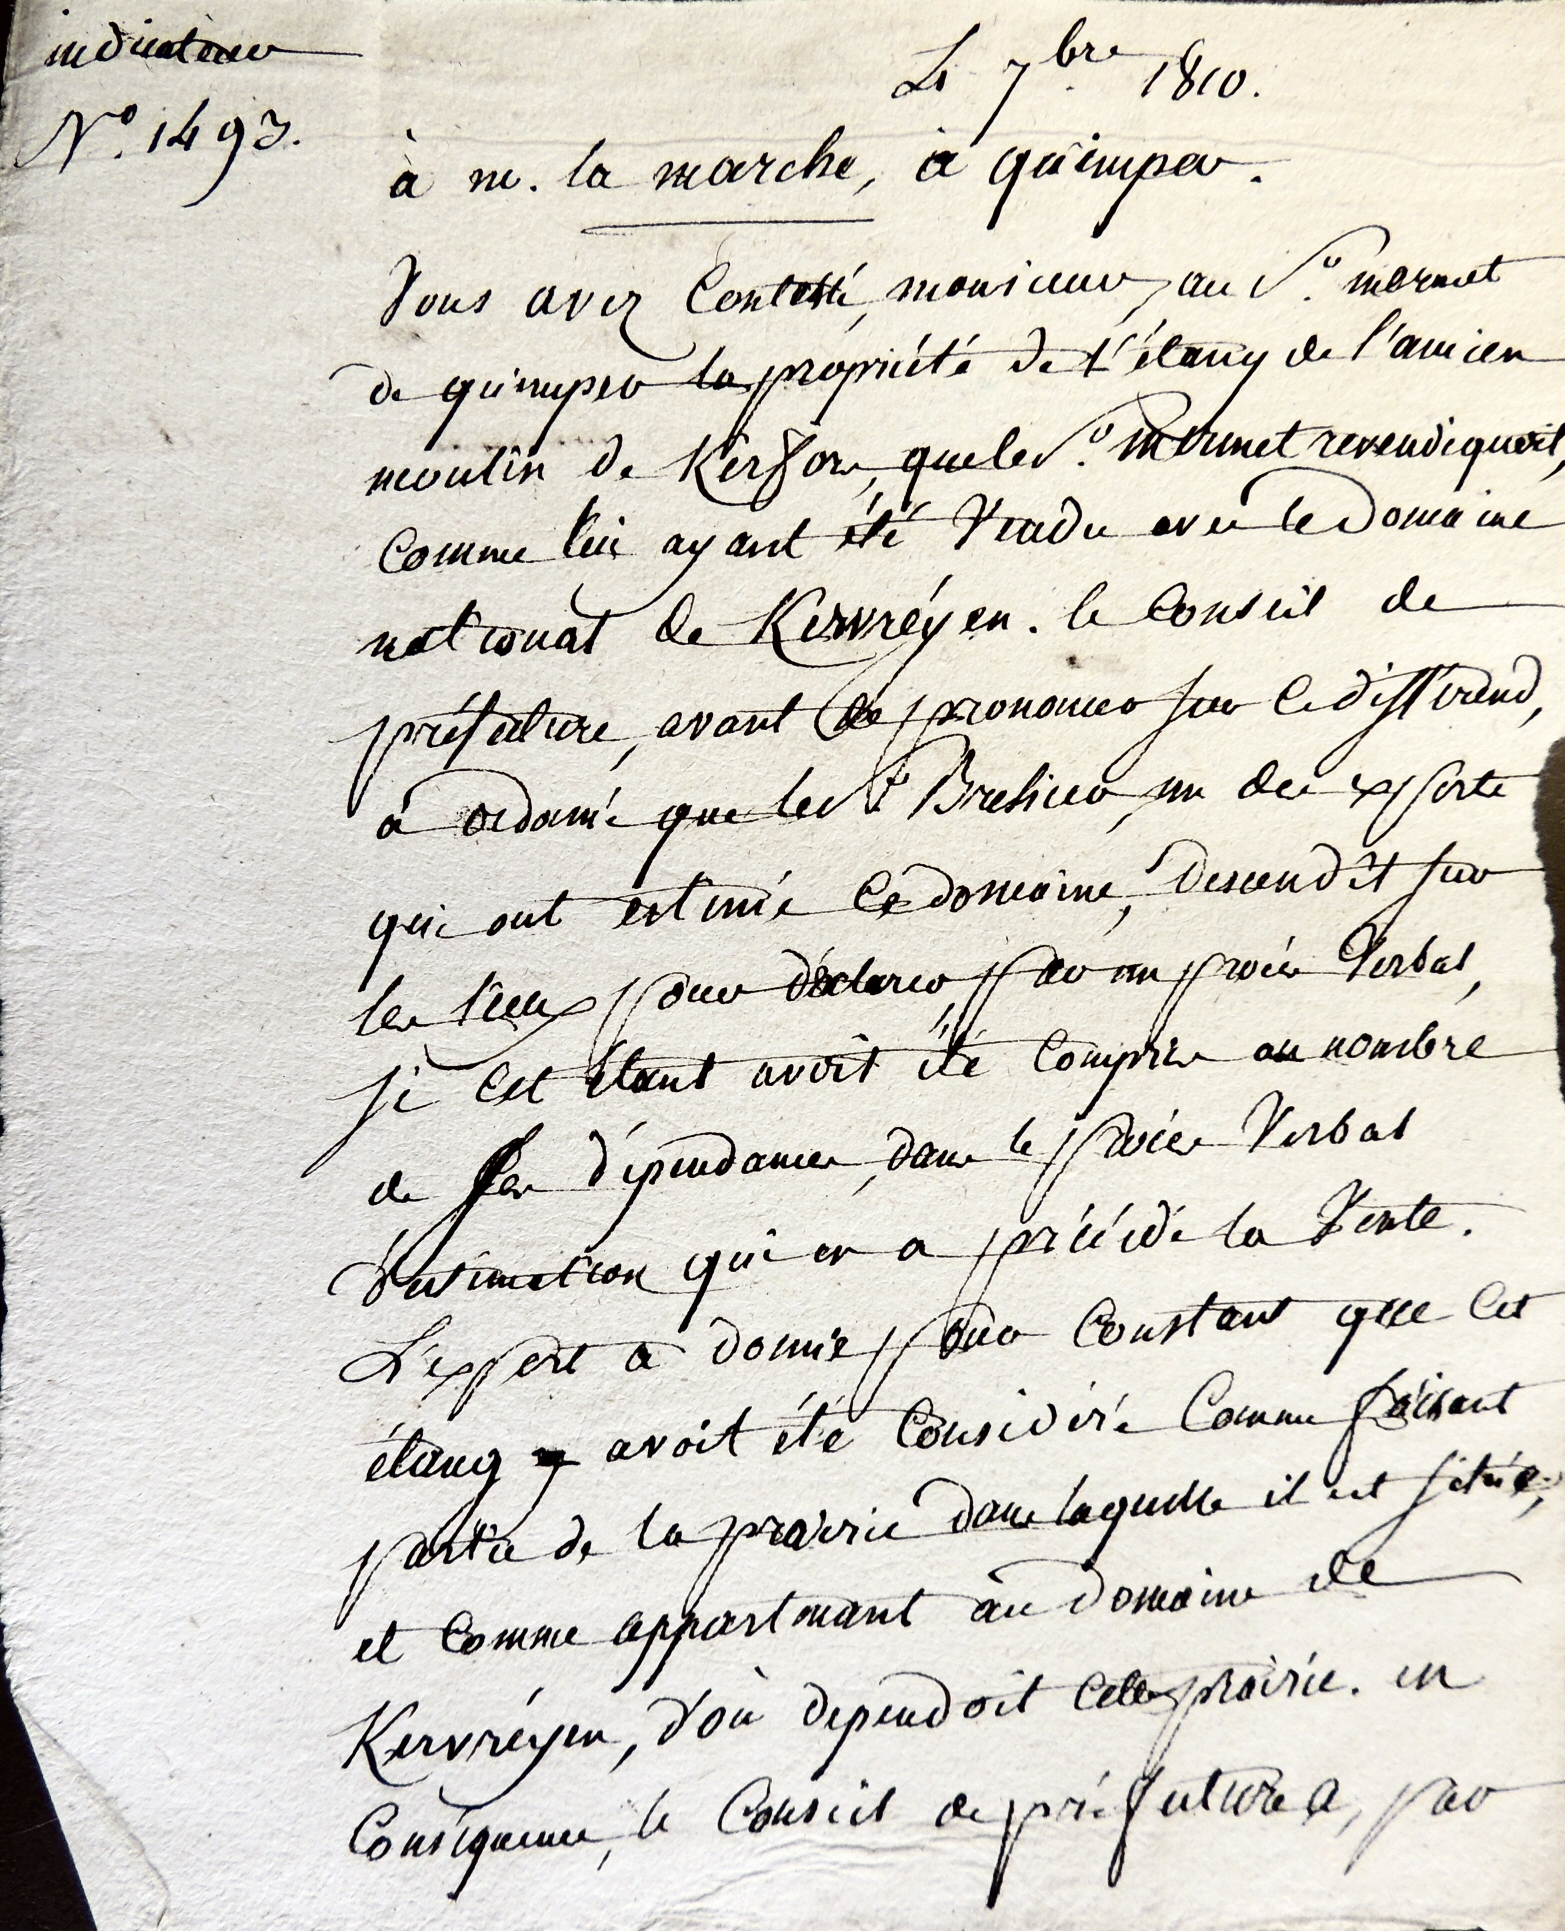 indicateur
N.° 1493.
Le 7.bre 1810.
à m. la marche, à quimper.
Vous avez Contesté, monsieur, au S.r mermet
de quimper la propriété de l'étang de l'ancien
moulin de Kerfors, que le S.r mermet revendiquoit,
Comme lui ayant été Vendu avec le Domaine
national de Kervréyen. le Conseil de
préfecture, avant de prononcer sur le différend,
à ordonné que le Sr Brelier, un des experts
qui ont estimé ce domaine, descendit sur
les lieux pour déclarer, par un procès Verbal,
si cet étant avoit été Compris au nombre
de ses dépendances, dans le procès Verbal
d'estimation qui en a précédé la Vente.
L'expert a donné pour Constant que Cet
étang avoit été Considéré Comme faisant
partie de la prairie dans laquelle il est situé,
et Comme appartenant au domaine de
Kervréyen, d'où dependoit cette prairie. en
Conséquence, le Conseil de préfecture a, par